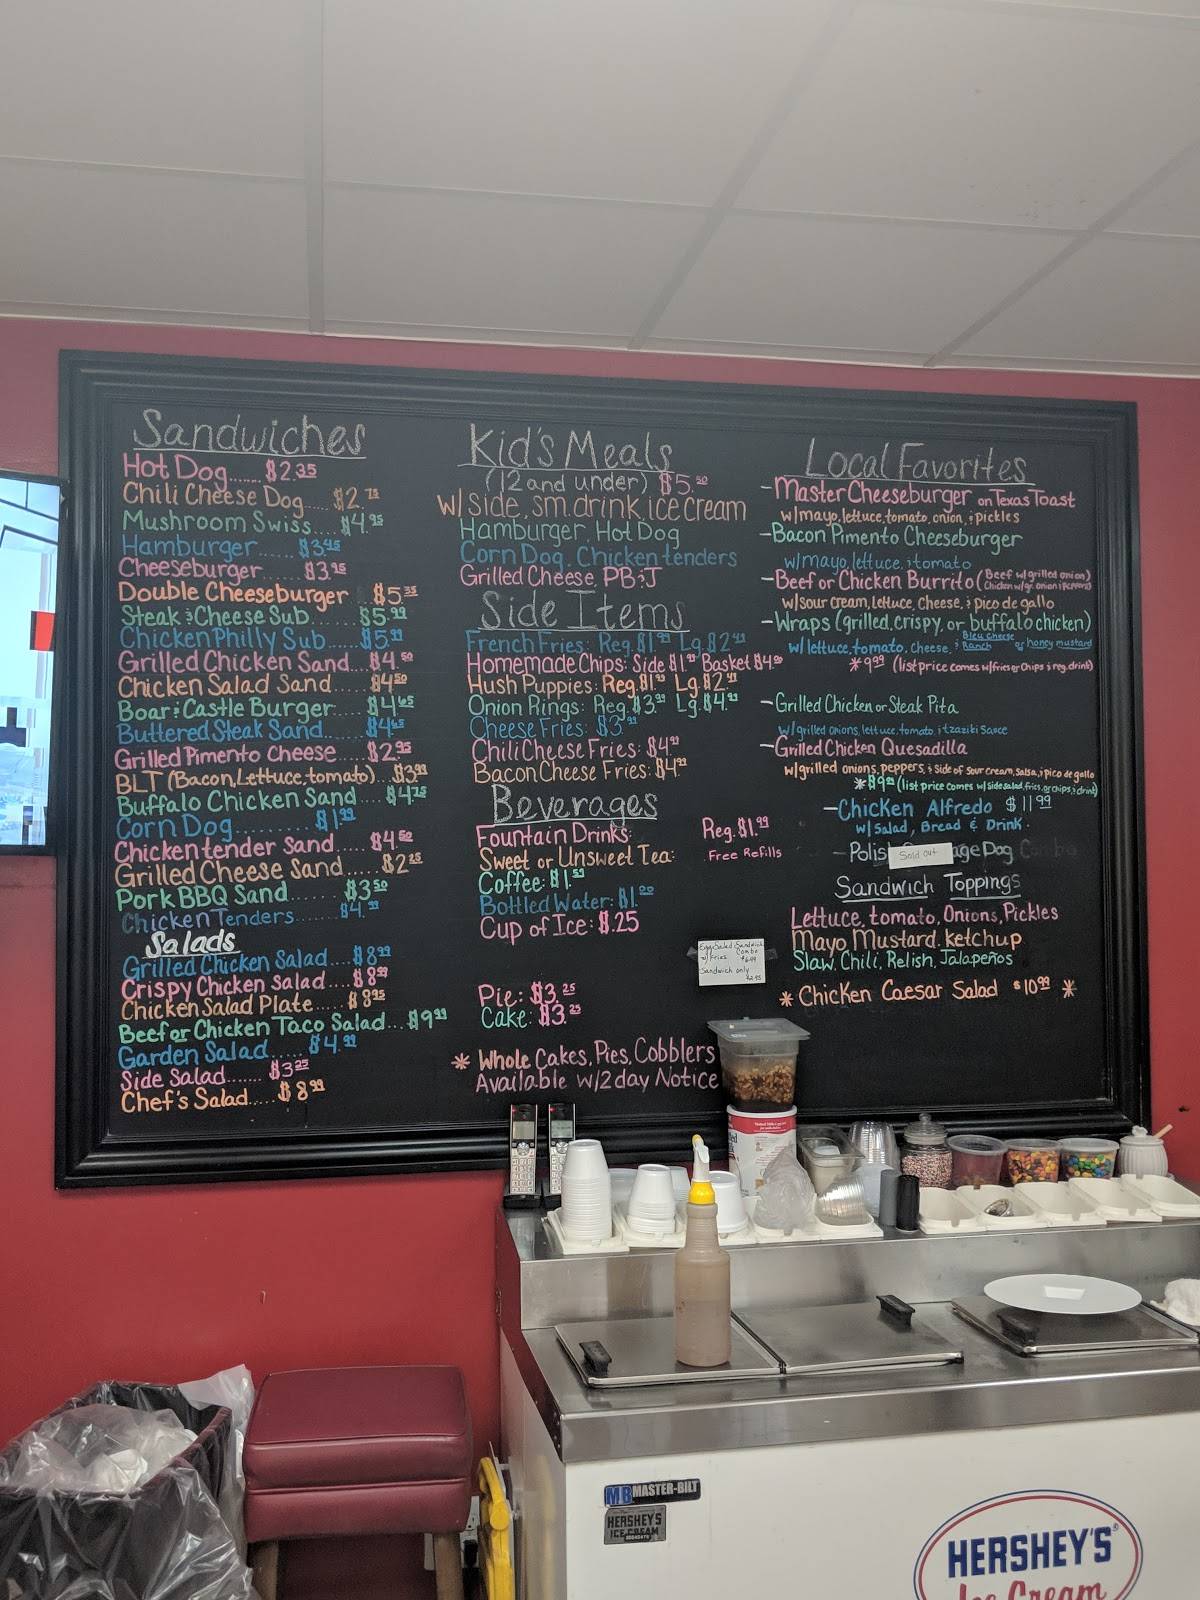 Sandwiches
Hot Dog...... $2.35
Chili Cheese Dog..... $2.75
Mushroom Swiss..... $4.95
Hamburger...... $3.45
Cheeseburger...... $3.95
Double Cheeseburger $5.35
Steak & Cheese Sub..... $5.99
Chicken Philly Sub..... $5.99
Grilled Chicken Sand.... $4.50
Chicken Salad Sand..... $4.50
Boar & Castle Burger.... $4.65
Buttered Steak Sand.... $4.65
Grilled Pimento Cheese.... $2.95
BLT (Bacon, Lettuce, tomato)... $3.99
Buffalo Chicken Sand.... $4.75
Corn Dog.......... $1.99
Chicken tender Sand.... $4.50
Grilled Cheese Sand.... $2.25
Pork BBQ Sand....... $3.50
Chicken Tenders....... $4.99
Salads
Grilled Chicken Salad.... $8.99
Crispy Chicken Salad.... $8.99
Chicken Salad Plate..... $8.95
Beef or Chicken Taco Salad... $9.99
Garden Salad..... $4.99
Side Salad....... $3.25
Chef's Salad..... $8.99
Kid's Meals
(12 and under) $5.50
w/ side, sm. drink, ice cream
Hamburger, Hot Dog
Corn Dog, Chicken tenders
Grilled Cheese, PB&J
Side Items
French Fries: Reg. $1.99 Lg. $2.49
Homemade Chips: Side $1.99 Basket $4.00
Hush Puppies: Reg. $1.99 Lg. $2.99
Onion Rings: Reg. $3.99 Lg. $4.99
Cheese Fries: $3.99
Chili Cheese Fries: $4.99
Bacon Cheese Fries: $4.99
Beverages
Fountain Drinks: Reg. $1.99
Sweet or Unsweet Tea: Free Refills
Coffee: $1.59
Bottled Water: $1.00
Cup of Ice: $.25
Egg Salad Sandwich
w/ Fries Combo
Sandwich only
Pie: $3.25
Cake: $3.25
* Whole Cakes, Pies, Cobblers
Available w/2 day Notice
Local Favorites
- Master Cheeseburger on Texas Toast
w/mayo, lettuce, tomato, onion, & pickles
- Bacon Pimento Cheeseburger
w/mayo, lettuce, & tomato
- Beef or Chicken Burrito (Beef w/grilled onion)
Chicken w/gr. onion & Peppers)
w/sour cream, lettuce, cheese, & pico de gallo
- Wraps (grilled, crispy, or buffalo chicken)
w/ lettuce, tomato, cheese, & Bleu cheese Ranch or honey mustard
* 9.99 (list price comes w/fries or chips & reg. drink)
- Grilled Chicken or Steak Pita
w/grilled onions, lettuce, tomato, & tzaziki sauce
- Grilled Chicken Quesadilla
w/grilled onions, peppers, & side of sour cream, salsa, & pico de gallo
* $9.99 (list price comes w/side salad, fries, or chips, & drink)
- Chicken Alfredo $11.99
w/ Salad, Bread & Drink
- Polis Sold out age Dog Combo
Sandwich Toppings
Lettuce, tomato, Onions, Pickles
Mayo, Mustard, ketchup
Slaw, Chili, Relish, Jalapeños
* Chicken Caesar Salad $10.99 *
MB MASTER-BILT
HERSHEY'S
ICE CREAM
HERSHEY'S®
Ice Cream